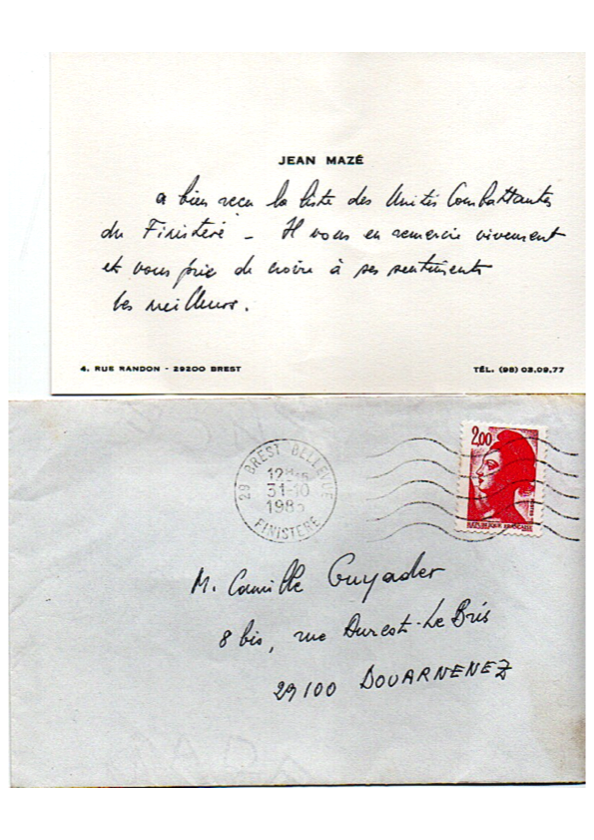 JEAN MAZÉ
a bien reçu la liste des Unités Combattantes
du Finistère - Il vous en remercie vivement
et vous prie de croire à ses sentiments
les meilleurs.
4, RUE RANDON - 29200 BREST
TÉL. (98) 03.09.77
2,00
REPUBLIQUE FRANÇAISE
29 BREST BELLEVUE
31-10
FINISTERE
M. Camille Guyader
8 bis, rue Durest-Le Bris
29100 DOUARNENEZ